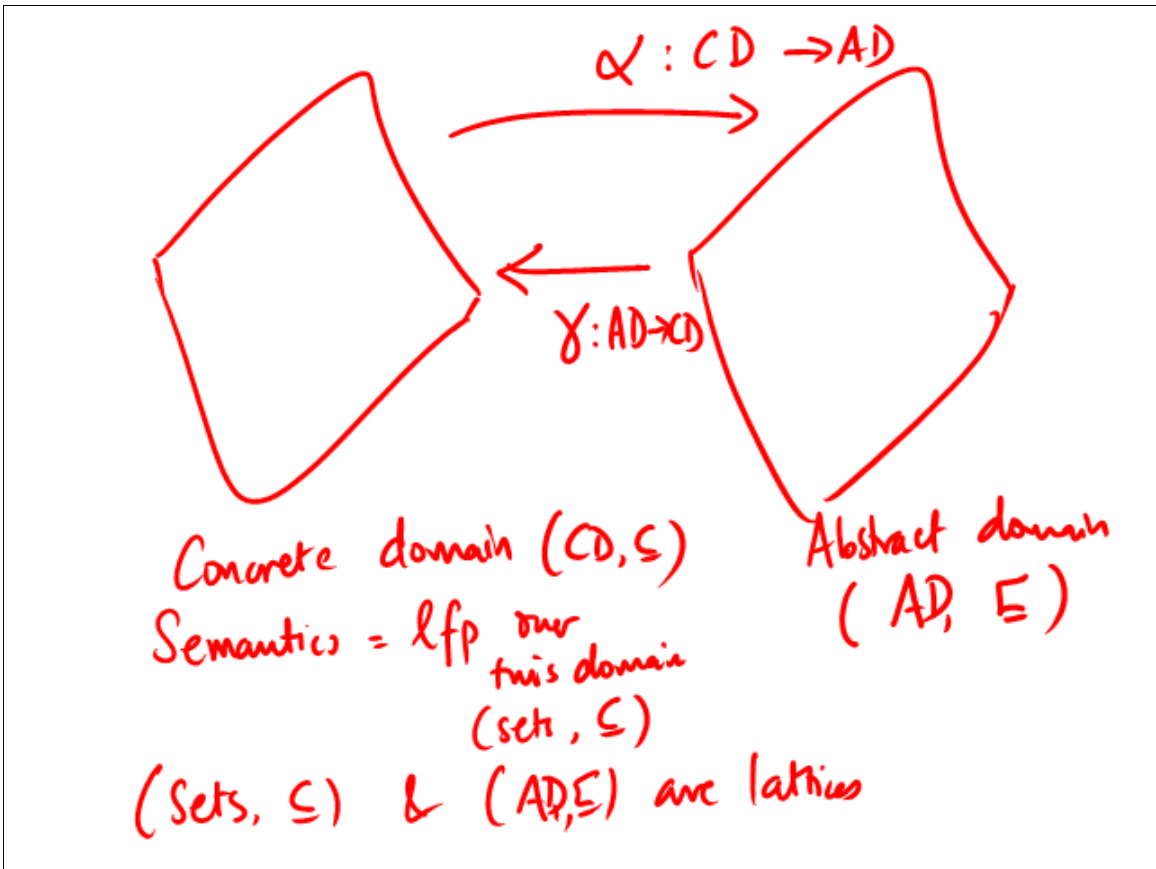 α : CD → AD
γ : AD → CD
Concrete domain (CD, ⊆)
Semantics = lfp over
this domain
(sets, ⊆)
Abstract domain
(AD, ⊑)
(Sets, ⊆) & (AD, ⊑) are lattices